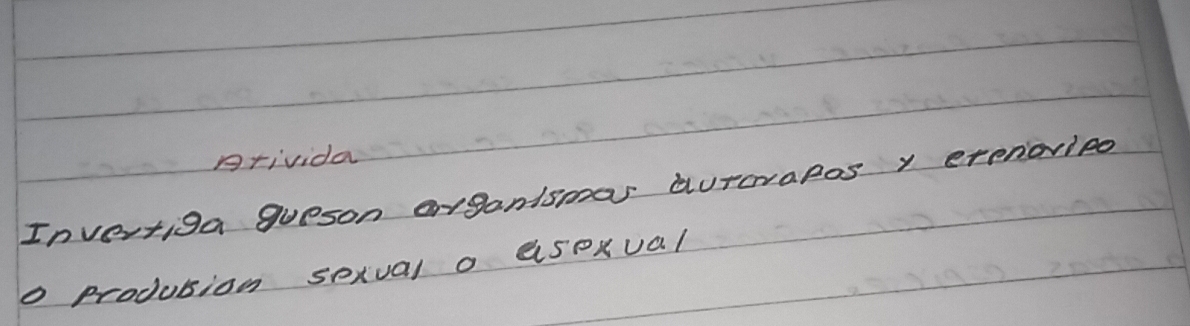 Ativida
Invertiga queson organismos autorapos y erenoripo
o produsion sexual o asexual